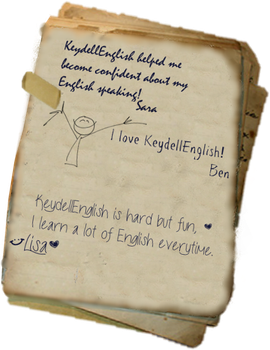 KeydellEnglish helped me
become confident about my
English speaking!
Sara
I love KeydellEnglish!
Ben
KeydellEnglish is hard but fun,
I learn a lot of English everytime.
Lisa